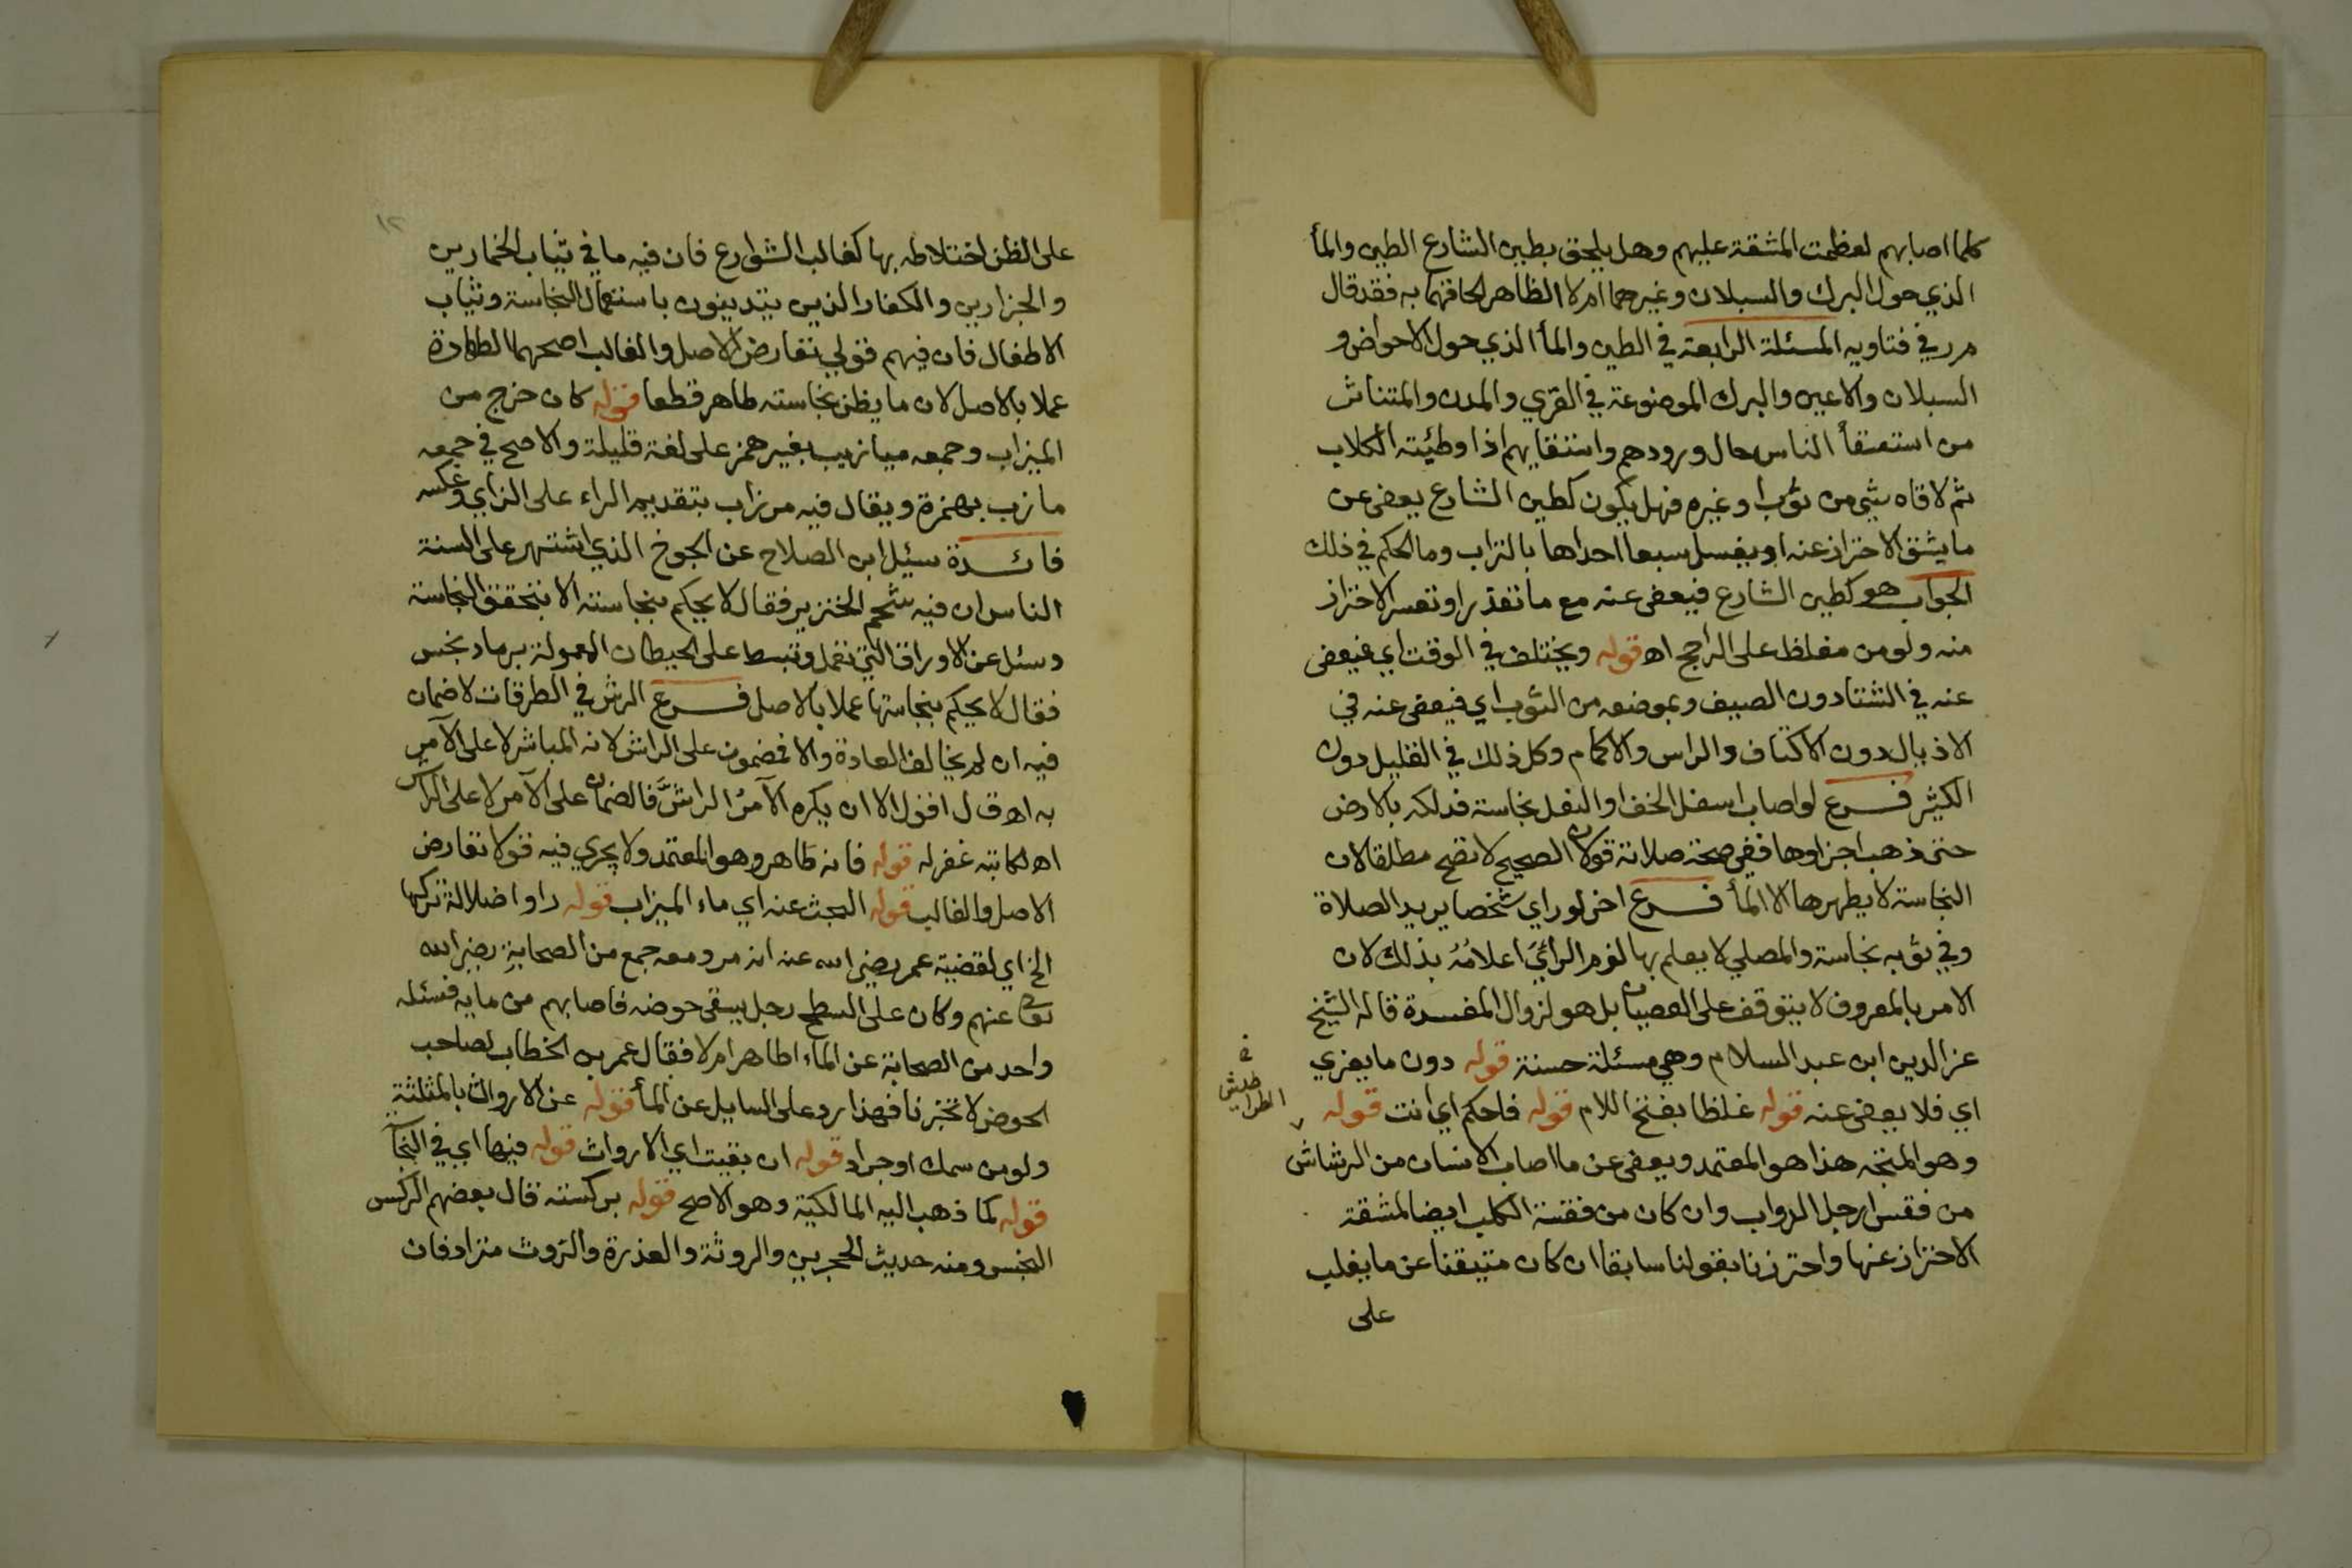 كلما اصابهم لعظمت المشقة عليهم وهل يلحق بطين الشارع الطين والمأ
الذي حول البرك والسبلان وغيرهما ام لا الظاهر الحاقهما به فقد قال
م ر في فتاويه المسئلة الرابعة في الطين والمأ الذي حول الاحواض و
السبلان والاعين والبرك الموضوعة في القري والمدن والمتناثر
من استسقأ الناس حال ورودهم واستقايهم اذا وطئته الكلاب
ثم لاقاه شي من ثوب او غيره فهل يكون كطين الشارع يعفى عن
ما يشق الاحتراز عنه او يغسل سبعا احداها بالتراب وما الحكم في ذلك
الجواب هو كطين الشارع فيعفى عنه مع ما تعذر او تعسر الاحتراز
منه ولو من مغلظ على الراجح اه قوله ويختلف في الوقت اي فيعفى
عنه في الشتا دون الصيف وبموضعه من الثوب اي فيعفى عنه في
الاذيال دون الاكتاف والراس والاكمام وكل ذلك في القليل دون
الكثير فرع لو اصاب اسفل الخف او النعل نجاسة فدلكه بالارض
حتى ذهب اجزاوها ففي صحة صلاته قولان الصحيح لا تصح مطلقا لان
النجاسة لا يطهرها الا المأ فرع اخر لو راي شخصا يريد الصلاة
وفي ثوبه نجاسة والمصلي لا يعلم بها لزم الرائي اعلامه بذلك لان
الامر بالمعروف لا يتوقف على العصيان بل هو لزوال المفسدة قاله الشيخ
عز الدين ابن عبد السلام وهي مسئلة حسنة قوله دون ما يعزي
اي فلا يعفى عنه قوله غلظا بفتح اللام قوله فاحكم اي انت قوله
وهو المتجه هذا هو المعتمد ويعفى عن ما اصاب الانسان من الرشاش
من فقس ارجل الدواب وان كان من فقسة الكلب ايضا لمشقة
الاحتراز عنها واحترزنا بقولنا سابقا ان كان متيقنا عن ما يغلب
على
على الظن اختلاطه بها كغالب الشوارع فان فيه ما في ثياب الخمارين
والجزارين والكفار الذين يتدينون باستعمال النجاسة وثياب
الاطفال فان فيهم قولي تعارض الاصل والغالب اصحهما الطهارة
عملا بالاصل لان ما يظن نجاسته طاهر قطعا قوله كان خرج من
الميزاب وجمعه ميازيب بغير همز على لغة قليلة والاصح في جمعه
مازب بهمزة ويقال فيه مرزاب بتقديم الراء على الزاي وعكسه
فائدة سيئل ابن الصلاح عن الجوخ الذي اشتهر على السنة
الناس ان فيه شحم الخنزير فقال لا يحكم بنجاسته الا بتحقق النجاسة
وسئل عن الاوراق التي تعمل وتبسط على الحيطان المعمولة برماد نجس
فقال لا يحكم بنجاستها عملا بالاصل فرع الرش في الطرقات لا ضمان
فيه ان لم يخالف العادة والا فمضمون على الراش لانه المباشر لا على الآمر
به اه ق ل اقول الا ان يكره الآمر الراش فالضمان على الآمر لا على الراش
اه لكاتبه غفر له قوله فانه طاهر وهو المعتمد ولا يجري فيه قولا تعارض
الاصل والغالب قوله البحث عنه اي ماء الميزاب قوله راوا ضلالة تركها
الخ اي لقضية عمر رضي الله عنه انه مر ومعه جمع من الصحابة رضي الله
تعالى عنهم وكان على السطح رجل يسقى حوضه فاصابهم من مايه فسئله
واحد من الصحابة عن الماء اطاهر ام لا فقال عمر بن الخطاب لصاحب
الحوض لا تخبرنا فهذا رد على السايل عن المأ قوله عن الارواث بالمثلثة
ولو من سمك او جراد قوله ان بقيت اي الارواث قوله فيها اي في النجآ
قوله كما ذهب اليه المالكية وهو الاصح قوله بركسته قال بعضهم الركس
النجس ومنه حديث الحجرين والروثة والعذرة والروث مترادفان